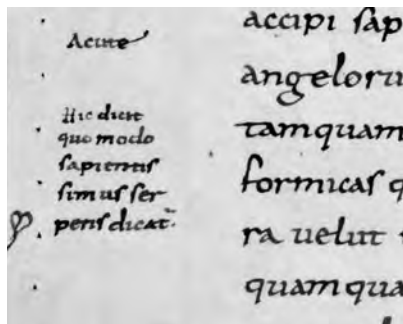 Acute
Hic dicit
quo modo
sapientis
simus ser
pens dicat
accipi sap
angeloru
tamquam
formicas q
ra uelut
quamqua